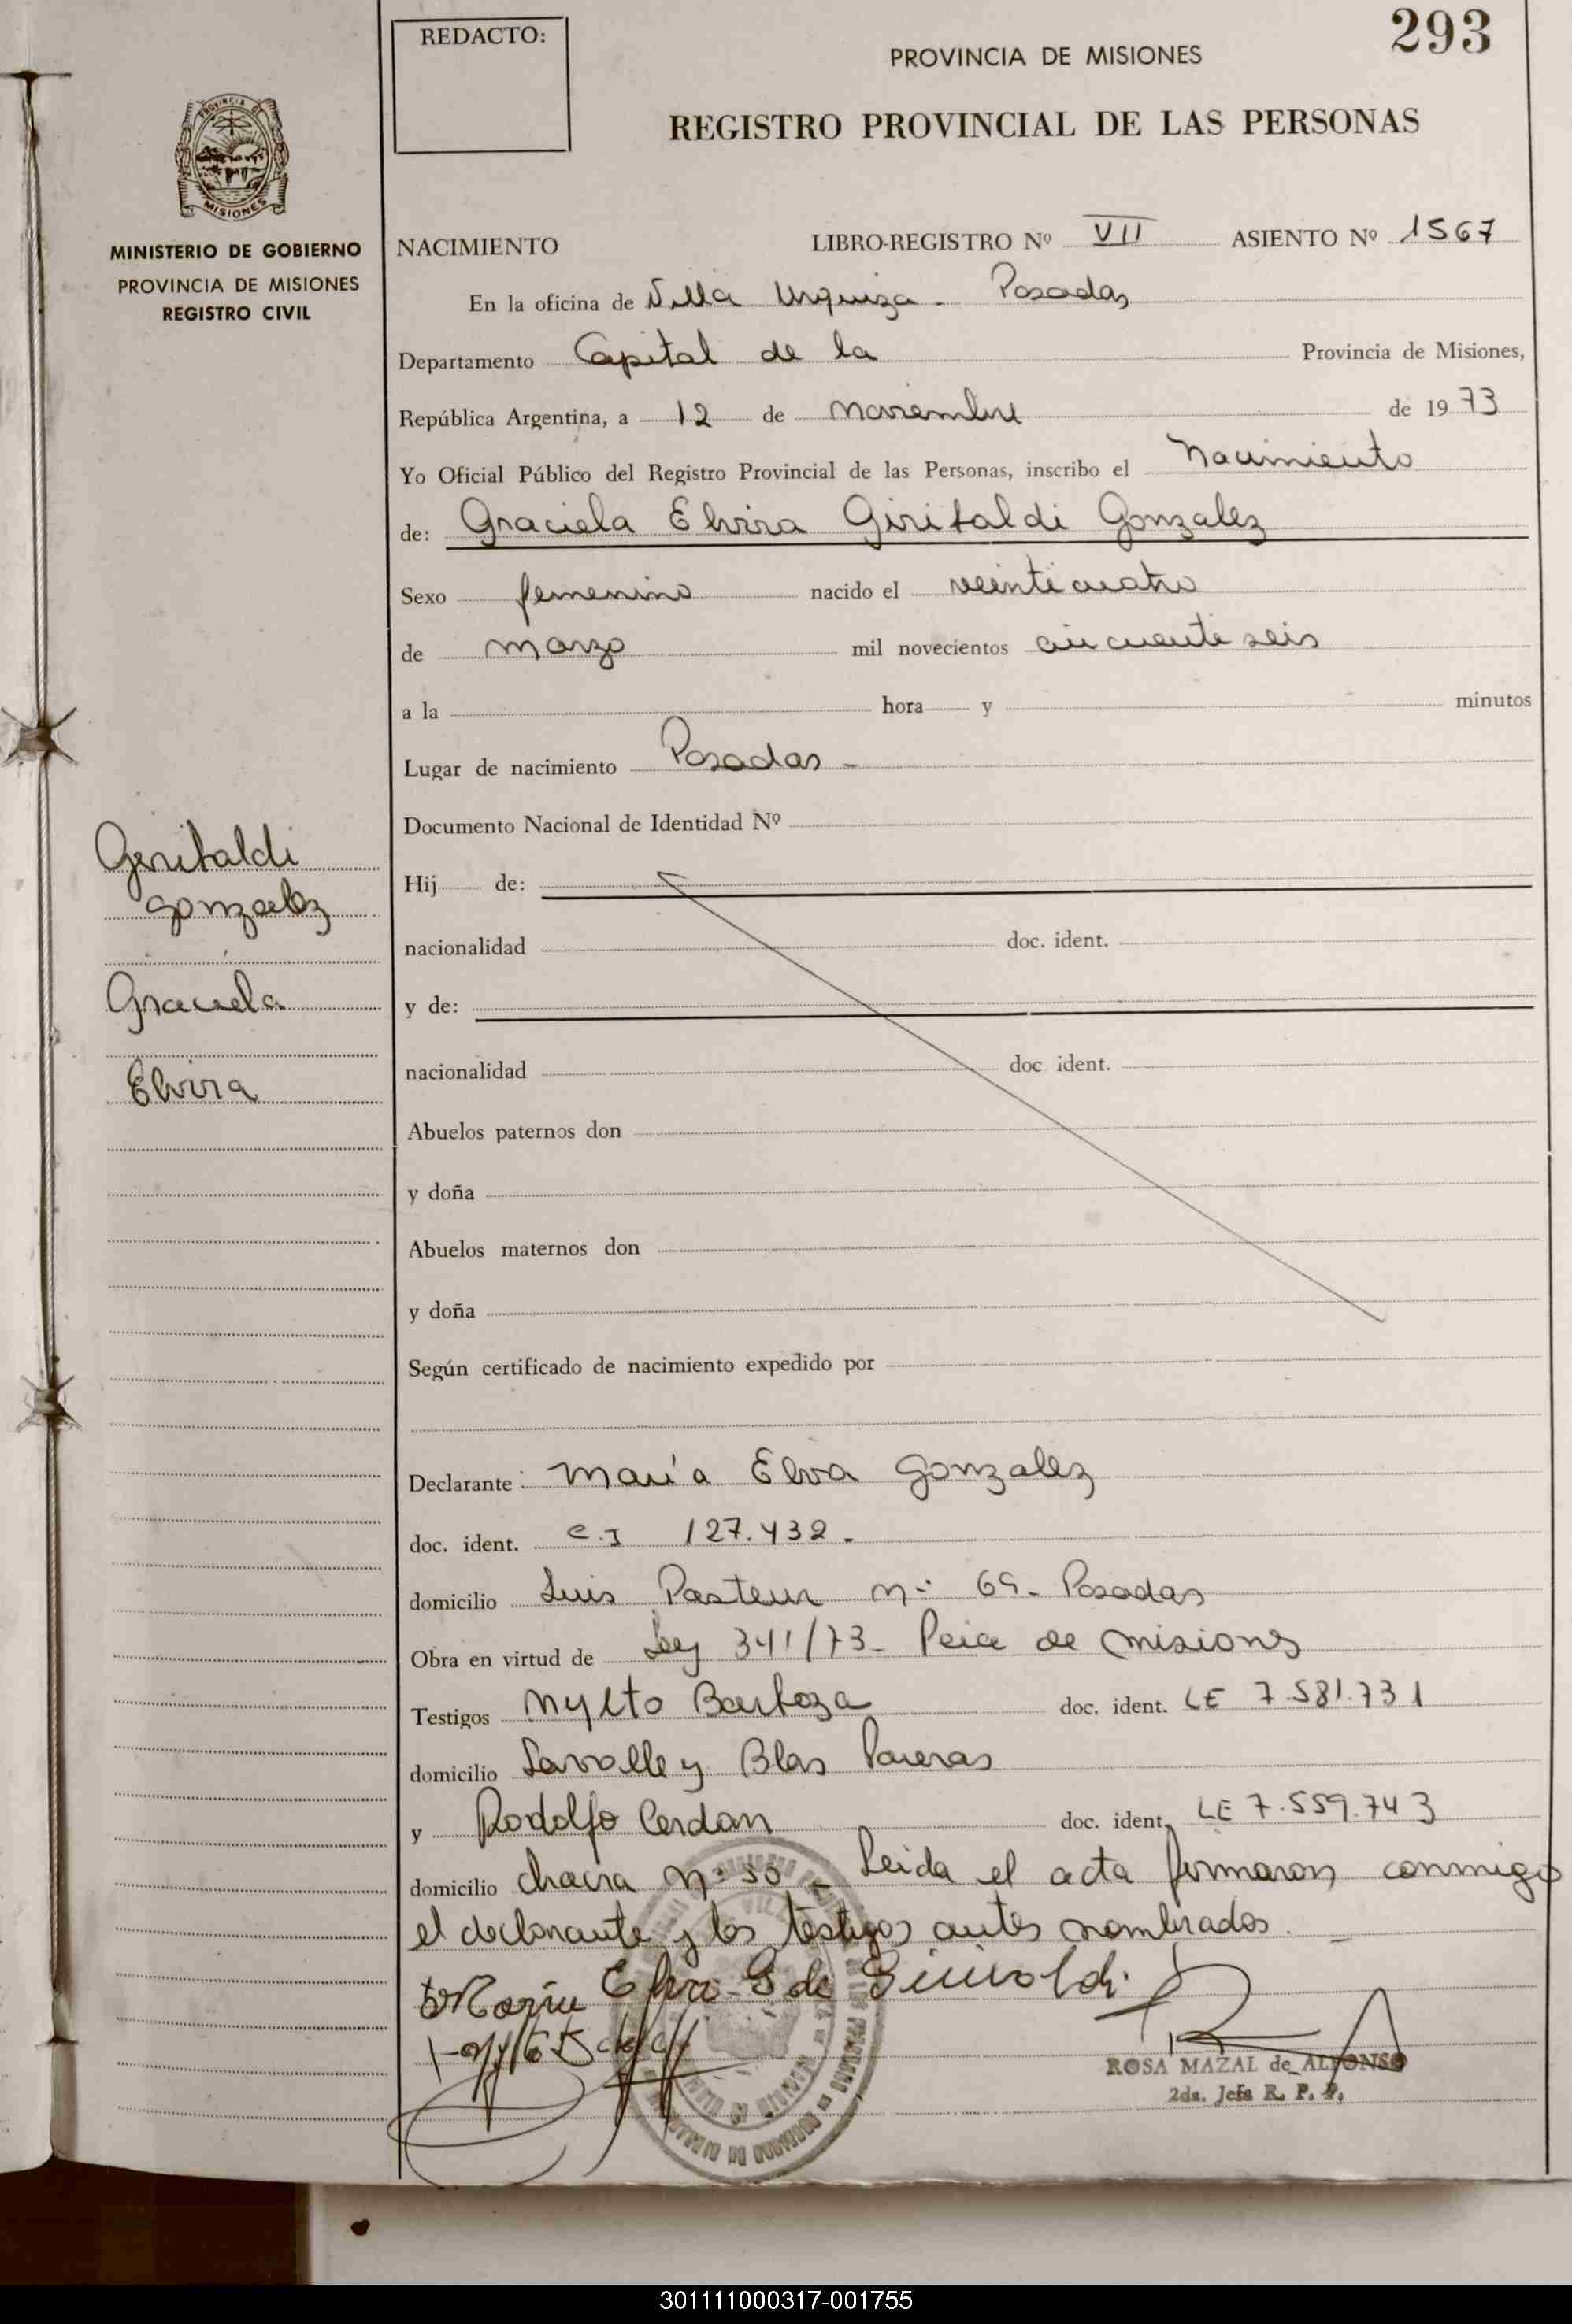 293
REDACTO:
PROVINCIA DE MISIONES
REGISTRO PROVINCIAL DE LAS PERSONAS
PROVINCIA DE
MISIONES
MINISTERIO DE GOBIERNO
PROVINCIA DE MISIONES
REGISTRO CIVIL
NACIMIENTO LIBRO-REGISTRO Nº VII ASIENTO Nº 1567
En la oficina de Villa Urquiza - Posadas
Departamento Capital de la Provincia de Misiones,
República Argentina, a 12 de noviembre de 1973
Yo Oficial Público del Registro Provincial de las Personas, inscribo el Nacimiento
de: Graciela Elvira Giribaldi Gonzalez
Sexo femenino nacido el veinticuatro
de marzo mil novecientos cincuenta seis
a la hora y minutos
Lugar de nacimiento Posadas -
Documento Nacional de Identidad Nº
Giribaldi
Gonzalez
Graciela
Elvira
Hij de:
nacionalidad doc. ident.
y de:
nacionalidad doc ident.
Abuelos paternos don
y doña
Abuelos maternos don
y doña
Según certificado de nacimiento expedido por
Declarante: María Elva Gonzalez
doc. ident. C.I 127.432.
domicilio Luis Pasteur nº 69- Posadas
Obra en virtud de Ley 341/73- Pcia de Misiones
Testigos Mylto Barboza doc. ident. LE 7.581.731
domicilio Lavalle y Blas Pareras
y Rodolfo Cerdan doc. ident. LE 7.559.743
domicilio chacra nº 50 - Leida el acta firmaron conmigo
el declarante y los testigos antes nombrados.
Maria Elva G de Girivaldi
ROSA MAZAL de ALFONSO
2da. Jefa R. P. P.
301111000317-001755